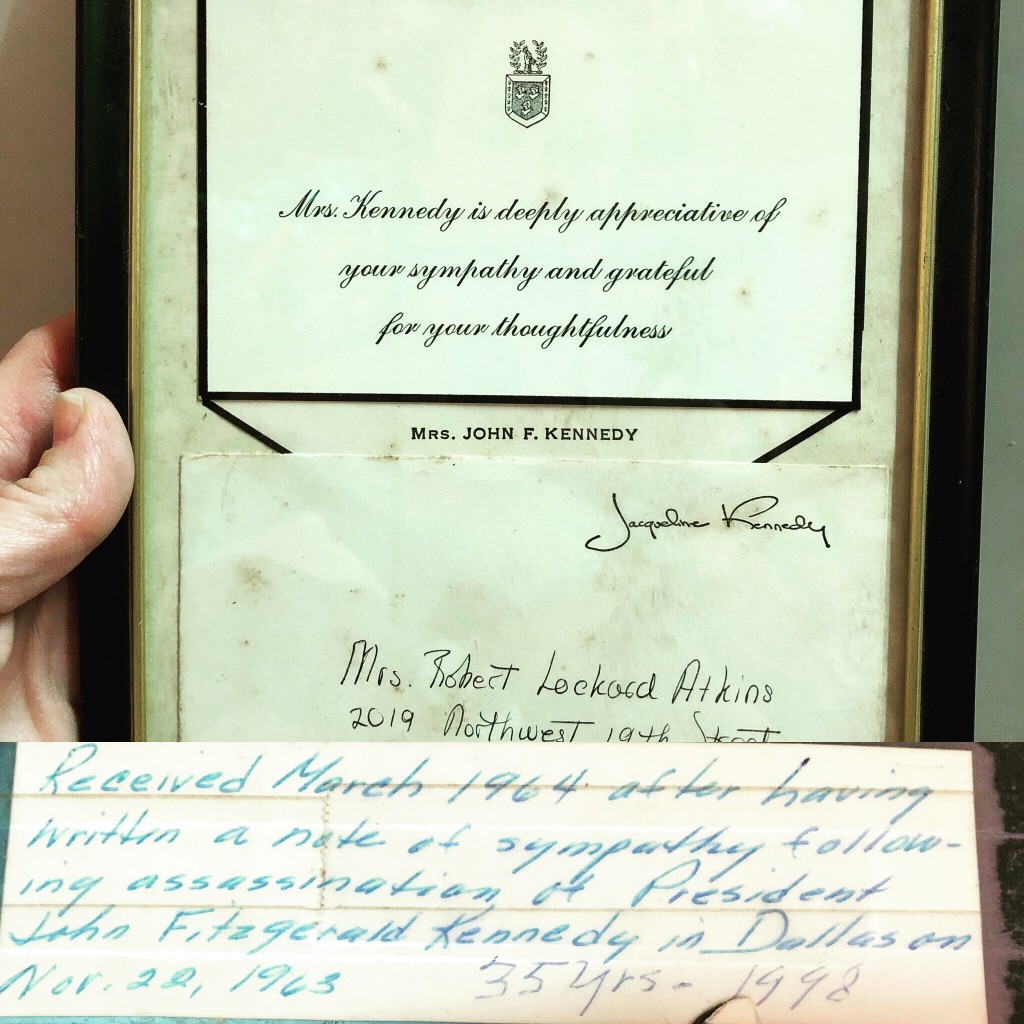 Mrs. Kennedy is deeply appreciative of
your sympathy and grateful
for your thoughtfulness
MRS. JOHN F. KENNEDY
Jacqueline Kennedy
Mrs. Robert Lockard Atkins
2019 Northwest 19th Street
Received March 1964 after having
written a note of sympathy follow-
ing assassination of President
John Fitzgerald Kennedy in Dallas on
Nov. 22, 1963 35 Yrs. - 1998